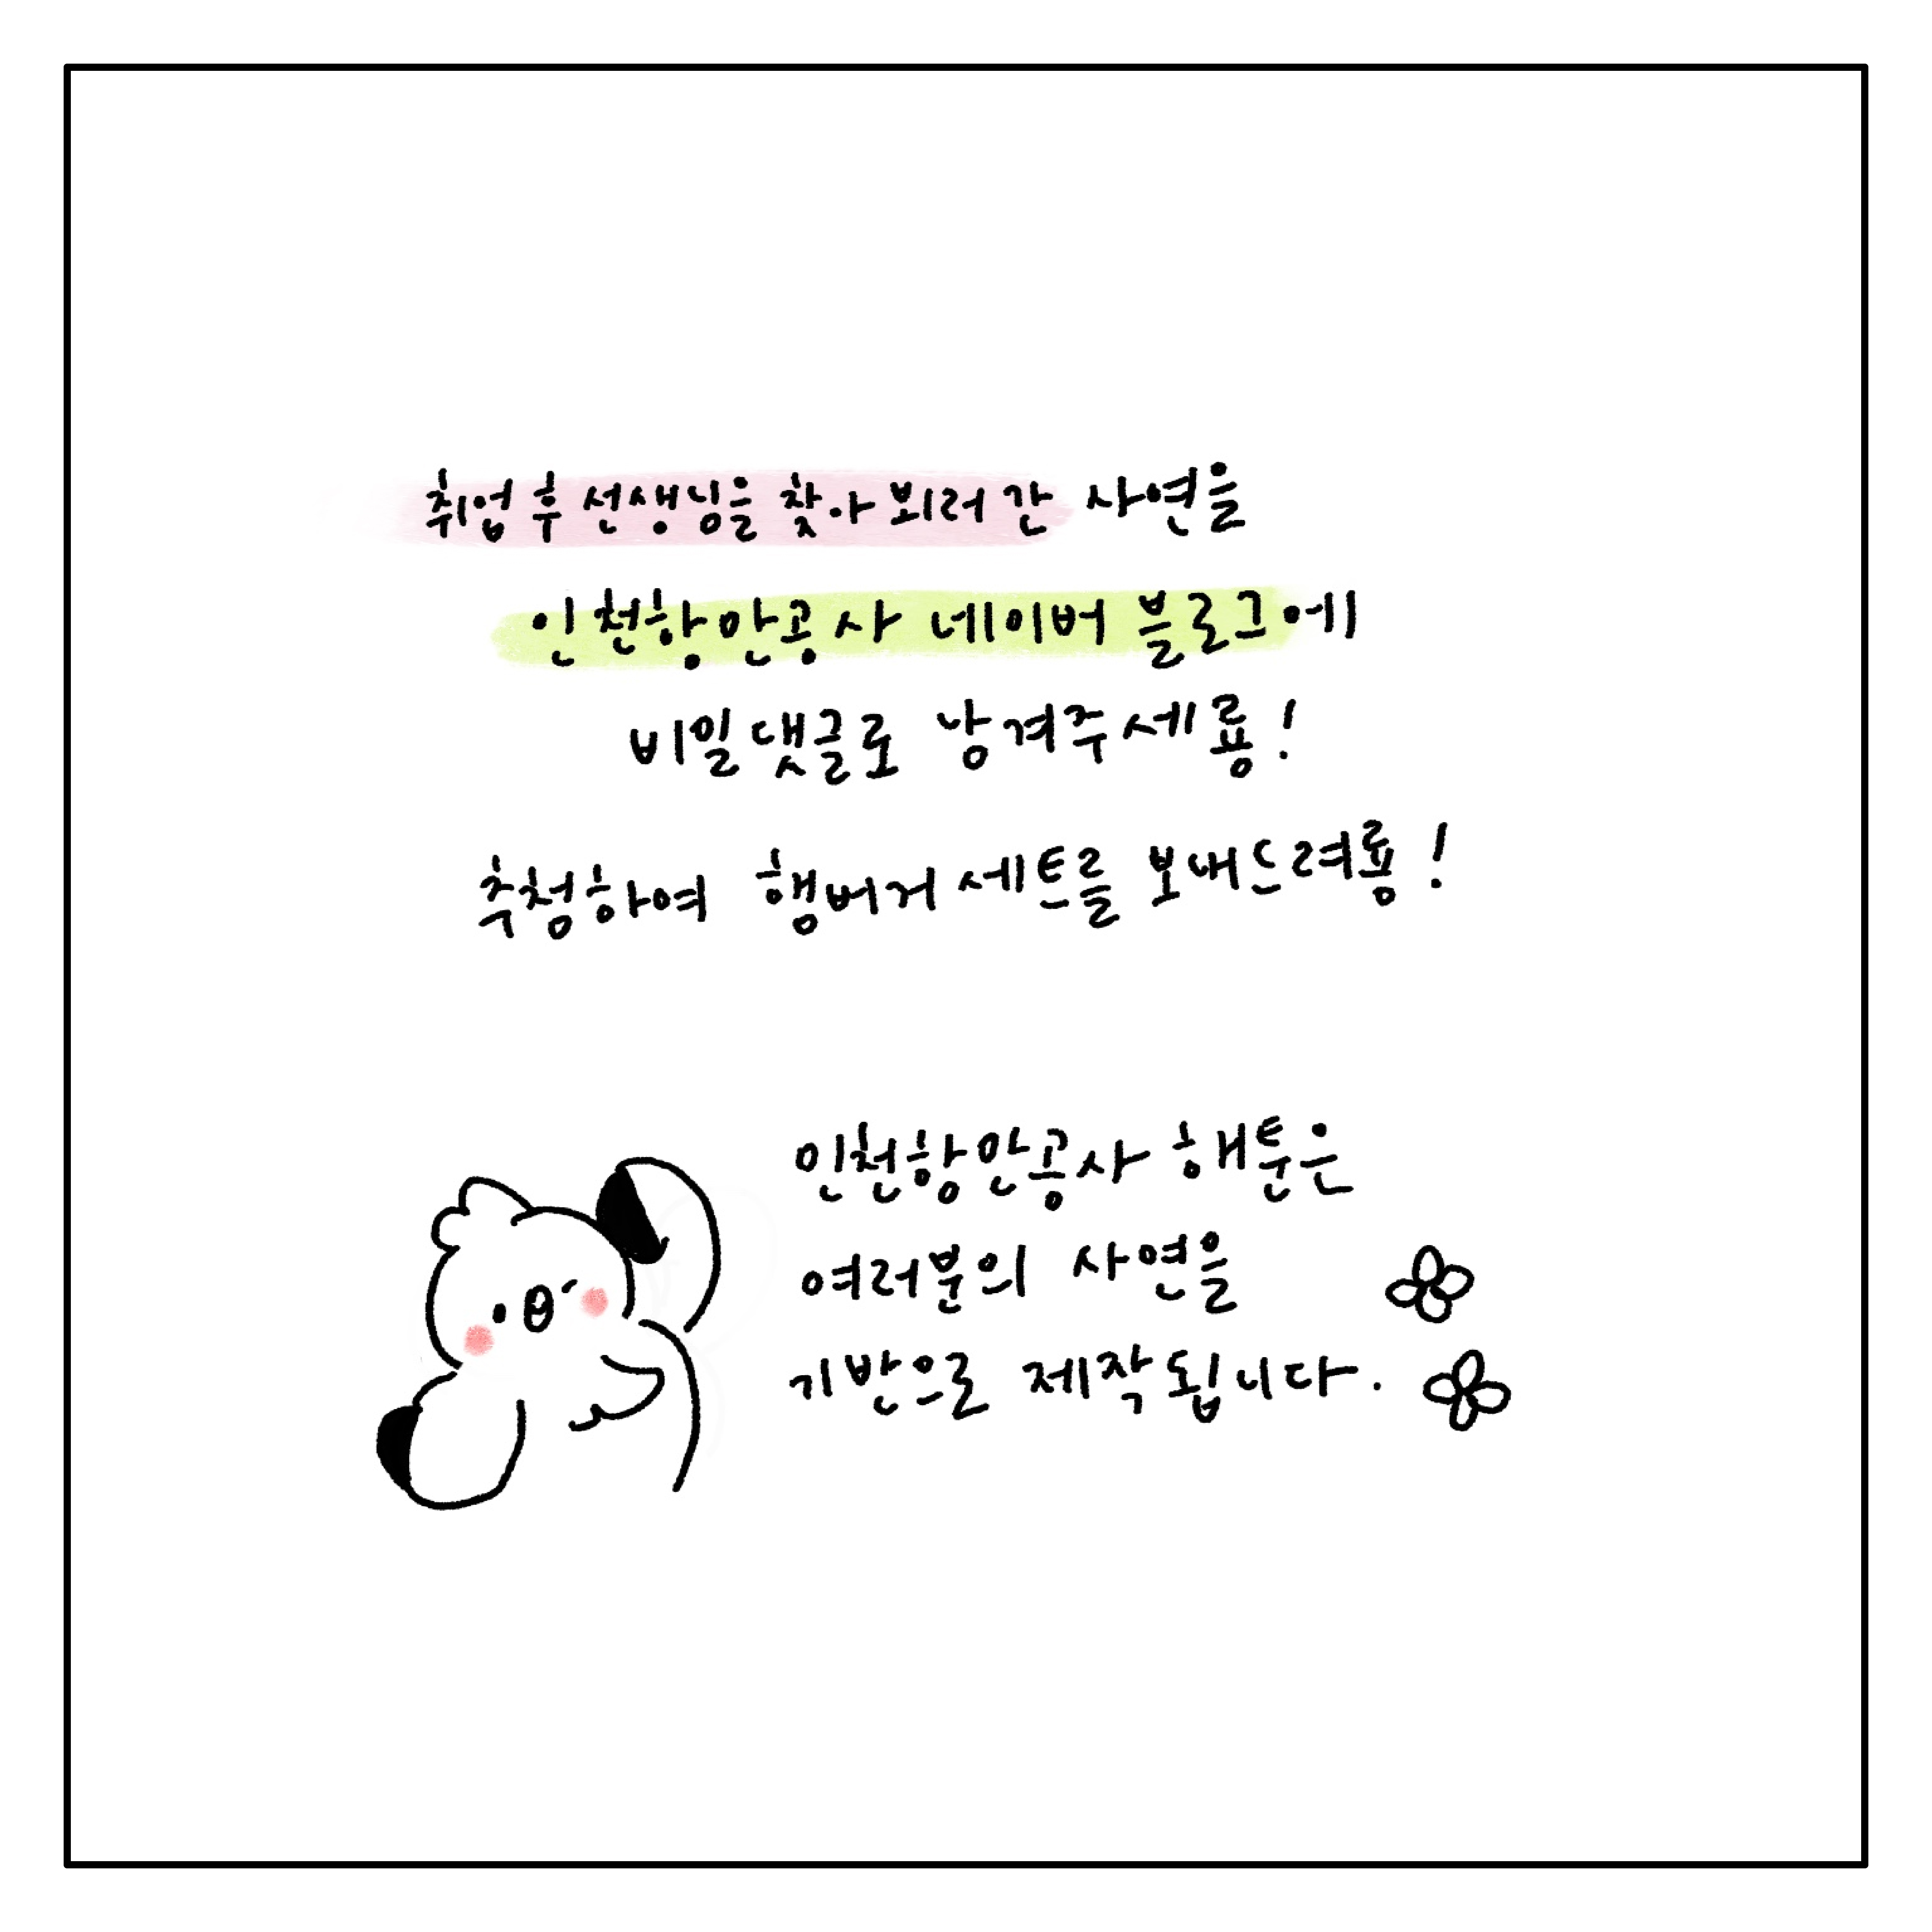 취업 후 선생님을 찾아 뵈러 간 사연을
인천항만공사 네이버 블로그에
비밀댓글로 남겨주세룡!
추첨하여 햄버거 세트를 보내드려룡!
인천항만공사 해툰은
여러분의 사연을
기반으로 제작됩니다.